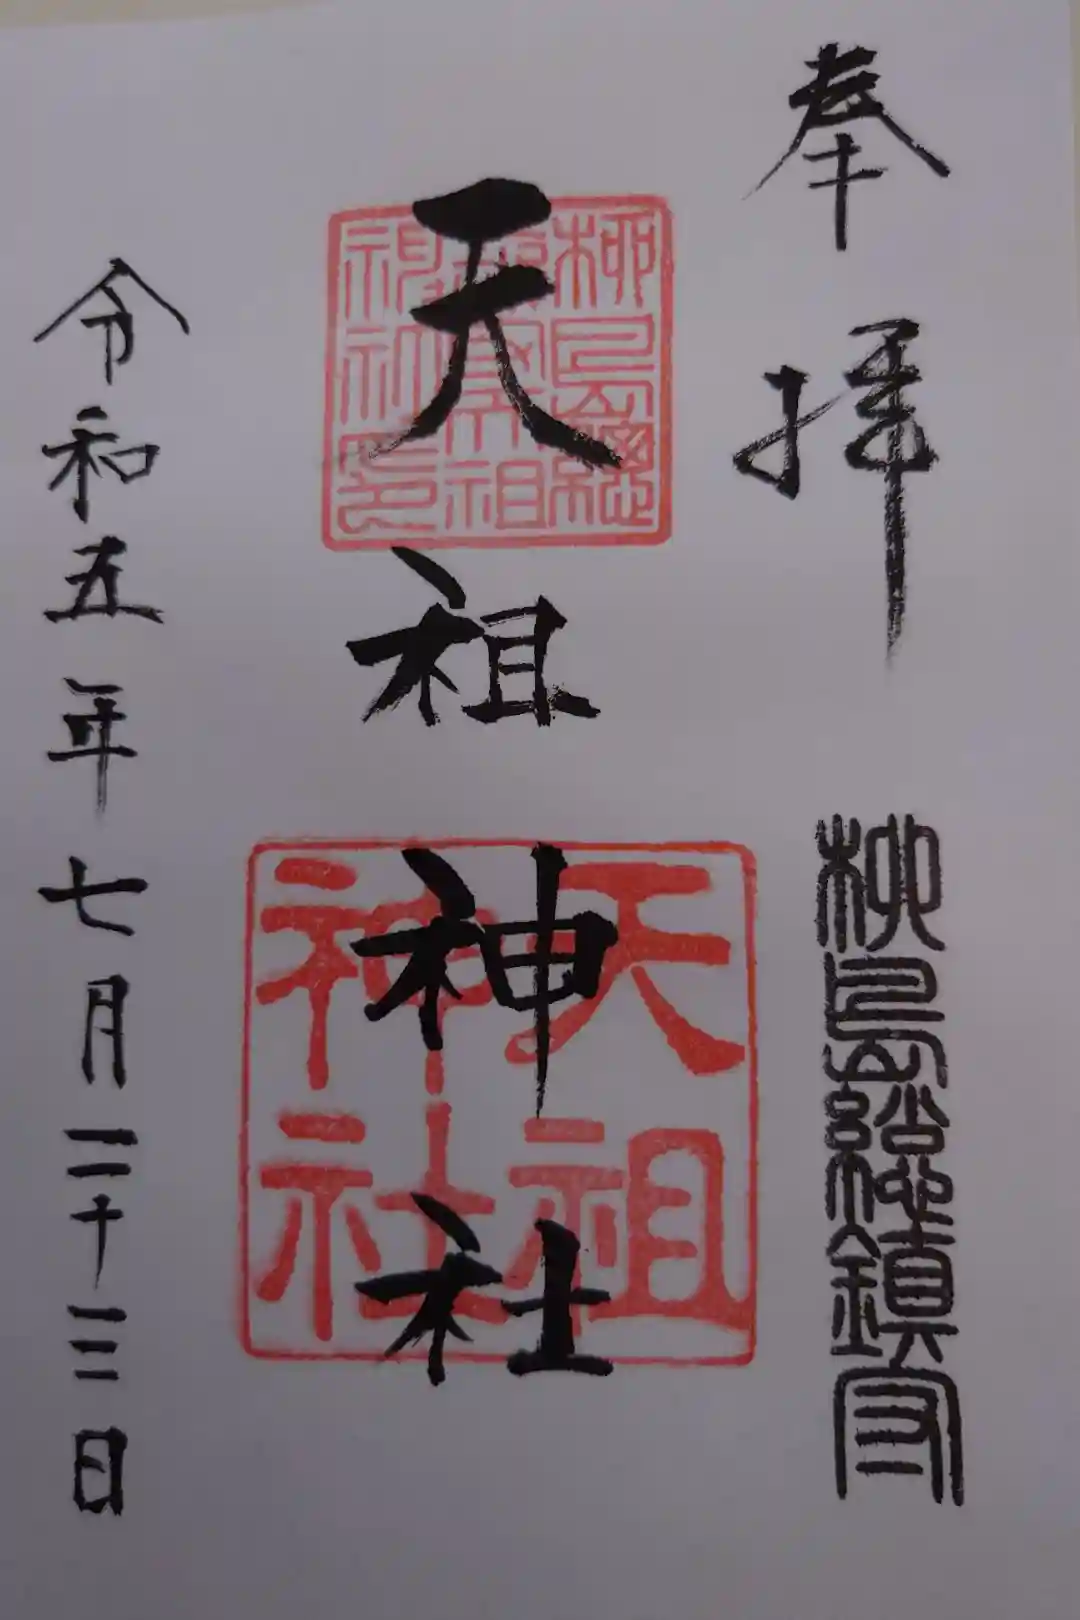 奉拝
柳島總鎮守
天祖神社
柳島總
鎮守天祖
神社印
天祖
神社
令和五年七月二十三日